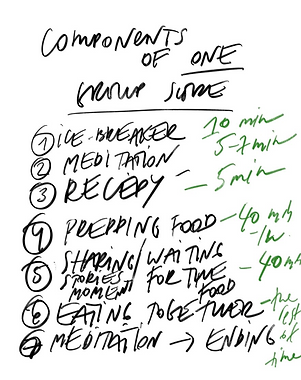 COMPONENTS
OF ONE
GROUP SCORE
1 ICE-BREAKER 10 min
2 MEDITATION - 5-7 min
3 RECEPY - 5 min
4 PREPPING FOOD - 40 min
5 SHARING/WAITING - 40 min
STORIES FOR THE
MOMENT FOOD
6 EATING TOGETHER - the
rest
7 MEDITATION → ENDING of
time